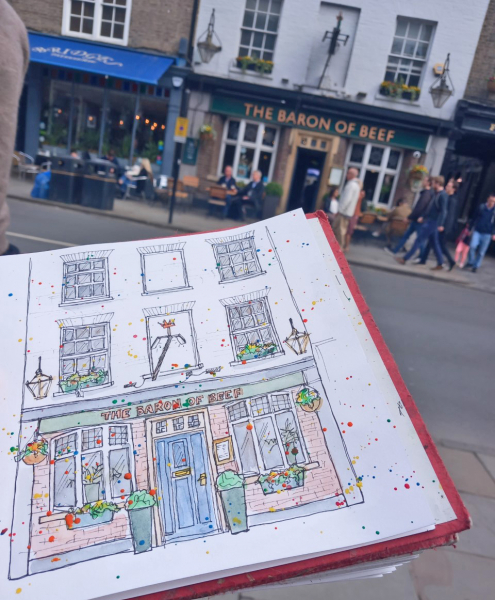 THE BARON OF BEEF
THE BARON OF BEEF